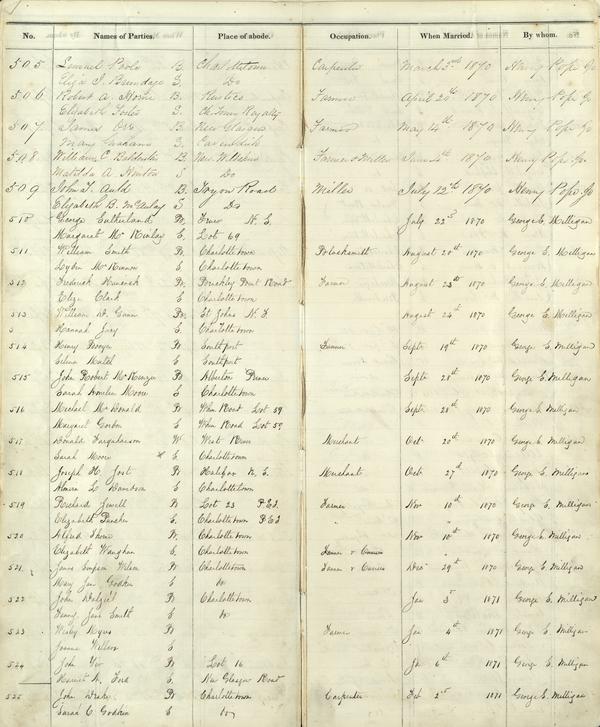 No. Names of Parties. Place of abode. Occupation. When Married. By whom.
505 Lemuel Poole B. Charlottetown Carpenter March 3rd 1870 Henry Pope Jo
Eliza J. Brundage S. Do
506 Robert A. Horne B. Rustico Farmer April 20th 1870 Henry Pope Jo
Elizabeth S. Ch. Town Royalty
507 James Orr B. New Glasgow Farmer May 14th 1870 Henry Pope Jo
Mary S. Cavendish
508 William C. B. New Wiltshire Farmer & Miller June 1870 Henry Pope Jo
Matilda A. Newton S Do
509 John T. Auld B. Tryon Road Miller July 12th 1870 Henry Pope Jo
Elizabeth B. McAulay S. Do
510 George Sutherland Truro N. S. July 22nd 1870 George E. Milligan
Margaret McKinlay S. Lot 69
511 William Smith Charlottetown Blacksmith August 20th 1870 George E. Milligan
Lydia McKinnon S Charlottetown
512 Frederick Point Road Farmer August 23rd 1870 George E. Milligan
Eliza Clark S Charlottetown
513 William D. St Johns N. F August 24th 1870 George E. Milligan
Hannah S Charlottetown
514 Henry Southport Farmer Septr 19th 1870 George E. Milligan
Southport
515 John Robert McKenzie Alberton Septr 28th 1870 George E. Milligan
Sarah Moore S Charlottetown
516 Michael McDonald Road Lot 59 Septr 28th 1870 George E. Milligan
Margaret Gordon S Road Lot 59
517 Donald Farquharson W West River Merchant Oct 20th 1870 George E. Milligan
Sarah Moore S Charlottetown
518 Joseph H. Jost Halifax N. S. Merchant Oct 27th 1870 George E. Milligan
Almira L. Davidson S Charlottetown
519 Richard Jewell Lot 23 P.E.I. Farmer Nov 10th 1870 George E. Milligan
Elizabeth S. Charlottetown P.E.I
520 Alfred Charlottetown Nov 10th 1870 George E. Milligan
Elizabeth Vaughan S. Charlottetown Farmer &
521 James Simpson Wilson Charlottetown Farmer & Decr 29th 1870 George E. Milligan
Mary Jane Godkin S Do
522 John Dalziel Charlottetown Jan 3rd 1871 George E. Milligan
Fanny Jane Smith S Do
523 Wesley Myers Farmer Jan 4th 1871 George E. Milligan
S
524 John Lot 16 Jan 6th 1871 George E. Milligan
Harriet A. Ford S New Glasgow Road
525 John Drake Charlottetown Carpenter Feb 2nd 1871 George E. Milligan
Sarah C. Godkin S Do